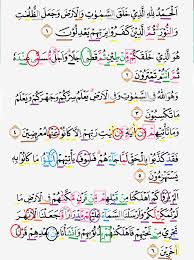 اَلْحَمْدُ لِلّٰهِ الَّذِيْ خَلَقَ السَّمٰوٰتِ وَالْاَرْضَ وَجَعَلَ الظُّلُمٰتِ
وَالنُّوْرَ ثُمَّ الَّذِيْنَ كَفَرُوْا بِرَبِّهِمْ يَعْدِلُوْنَ ١
هُوَ الَّذِيْ خَلَقَكُمْ مِّنْ طِيْنٍ ثُمَّ قَضٰٓى اَجَلًا وَاَجَلٌ مُّسَمًّى عِنْدَهٗ
ثُمَّ اَنْتُمْ تَمْتَرُوْنَ ٢
وَهُوَ اللّٰهُ فِى السَّمٰوٰتِ وَفِى الْاَرْضِ يَعْلَمُ سِرَّكُمْ وَجَهْرَكُمْ وَيَعْلَمُ
مَا تَكْسِبُوْنَ ٣
وَمَا تَأْتِيْهِمْ مِّنْ اٰيَةٍ مِّنْ اٰيٰتِ رَبِّهِمْ اِلَّا كَانُوْا عَنْهَا مُعْرِضِيْنَ ٤
فَقَدْ كَذَّبُوْا بِالْحَقِّ لَمَّا جَاۤءَهُمْ فَسَوْفَ يَأْتِيْهِمْ اَنْبٰۤـؤُا مَا كَانُوْا بِهٖ
يَسْتَهْزِءُوْنَ ٥
اَلَمْ يَرَوْا كَمْ اَهْلَكْنَا مِنْ قَبْلِهِمْ مِّنْ قَرْنٍ مَّكَّنّٰهُمْ فِى الْاَرْضِ مَا
لَمْ نُمَكِّنْ لَّكُمْ وَاَرْسَلْنَا السَّمَاۤءَ عَلَيْهِمْ مِّدْرَارًا وَّجَعَلْنَا الْاَنْهٰرَ
تَجْرِيْ مِنْ تَحْتِهِمْ فَاَهْلَكْنٰهُمْ بِذُنُوْبِهِمْ وَاَنْشَأْنَا مِنْ بَعْدِهِمْ قَرْنًا
٦